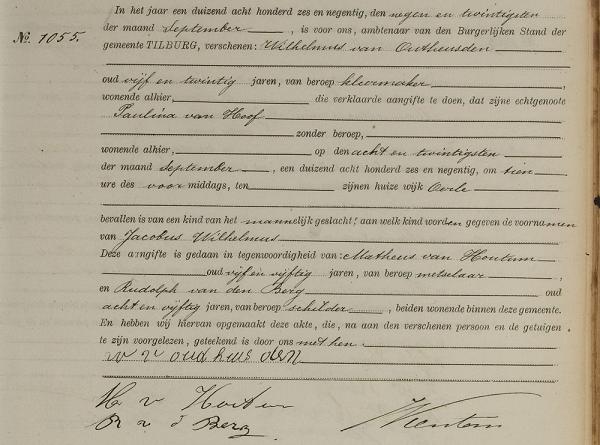 In het jaar een duizend acht honderd zes en negentig, den negen en twintigsten
Nº. 1055.
der maand September, is voor ons, ambtenaar van den Burgerlijken Stand der
gemeente TILBURG, verschenen: Wilhelmus van Oudheusden
oud vijf en twintig jaren, van beroep kleermaker,
wonende alhier, die verklaarde aangifte te doen, dat zijne echtgenoote
Paulina van Hoof
zonder beroep,
wonende alhier, op den acht en twintigsten
der maand September, een duizend acht honderd zes en negentig, om tien
ure des voor middags, ten zijnen huize wijk
bevallen is van een kind van het mannelijk geslacht, aan welk kind worden gegeven de voornamen
van Jacobus Wilhelmus
Deze aangifte is gedaan in tegenwoordigheid van: Matheus van Houtum
oud vijf en vijftig jaren, van beroep metselaar,
en Rudolph van den Berg oud
acht en vijftig jaren, van beroep schilder, beiden wonende binnen deze gemeente.
En hebben wij hiervan opgemaakt deze akte, die, na aan den verschenen persoon en de getuigen
te zijn voorgelezen, geteekend is door ons met hen.
W v oudheusden
M v
R v d Berg